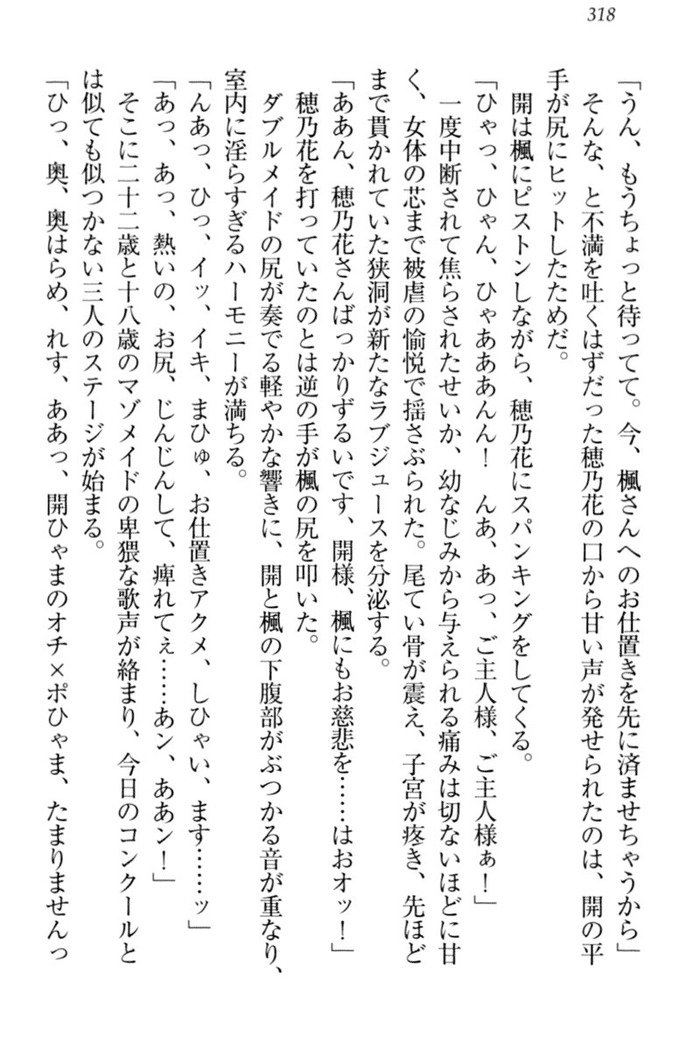 318
「うん、もうちょっと待ってて。今、楓さんへのお仕置きを先に済ませちゃうから」
そんな、と不満を吐くはずだった穂乃花の口から甘い声が発せられたのは、開の平
手が尻にヒットしたためだ。
開は楓にピストンしながら、穂乃花にスパンキングをしてくる。
「ひゃっ、ひゃん、ひゃあああんん！　んあ、あっ、ご主人様、ご主人様ぁ！」
一度中断されて焦らされたせいか、幼なじみから与えられる痛みは切ないほどに甘
く、女体の芯まで被虐の愉悦で揺さぶられた。尾てい骨が震え、子宮が疼き、先ほど
まで貫かれていた狭洞が新たなラブジュースを分泌する。
「ああん、穂乃花さんばっかりずるいです、開様、楓にもお慈悲を……はおオッ！」
穂乃花を打っていたのとは逆の手が楓の尻を叩いた。
ダブルメイドの尻が奏でる軽やかな響きに、開と楓の下腹部がぶつかる音が重なり、
室内に淫らすぎるハーモニーが満ちる。
「んあっ、ひっ、イッ、イキ、まひゅ、お仕置きアクメ、しひゃい、ます……ッ」
「あっ、あっ、熱いの、お尻、じんじんして、痺れてぇ……あン、ああン！」
そこに二十二歳と十八歳のマゾメイドの卑猥な歌声が絡まり、今日のコンクールと
は似ても似つかない三人のステージが始まる。
「ひっ、奥、奥はらめ、れす、ああっ、開ひゃまのオチ×ポひゃま、たまりませんっ